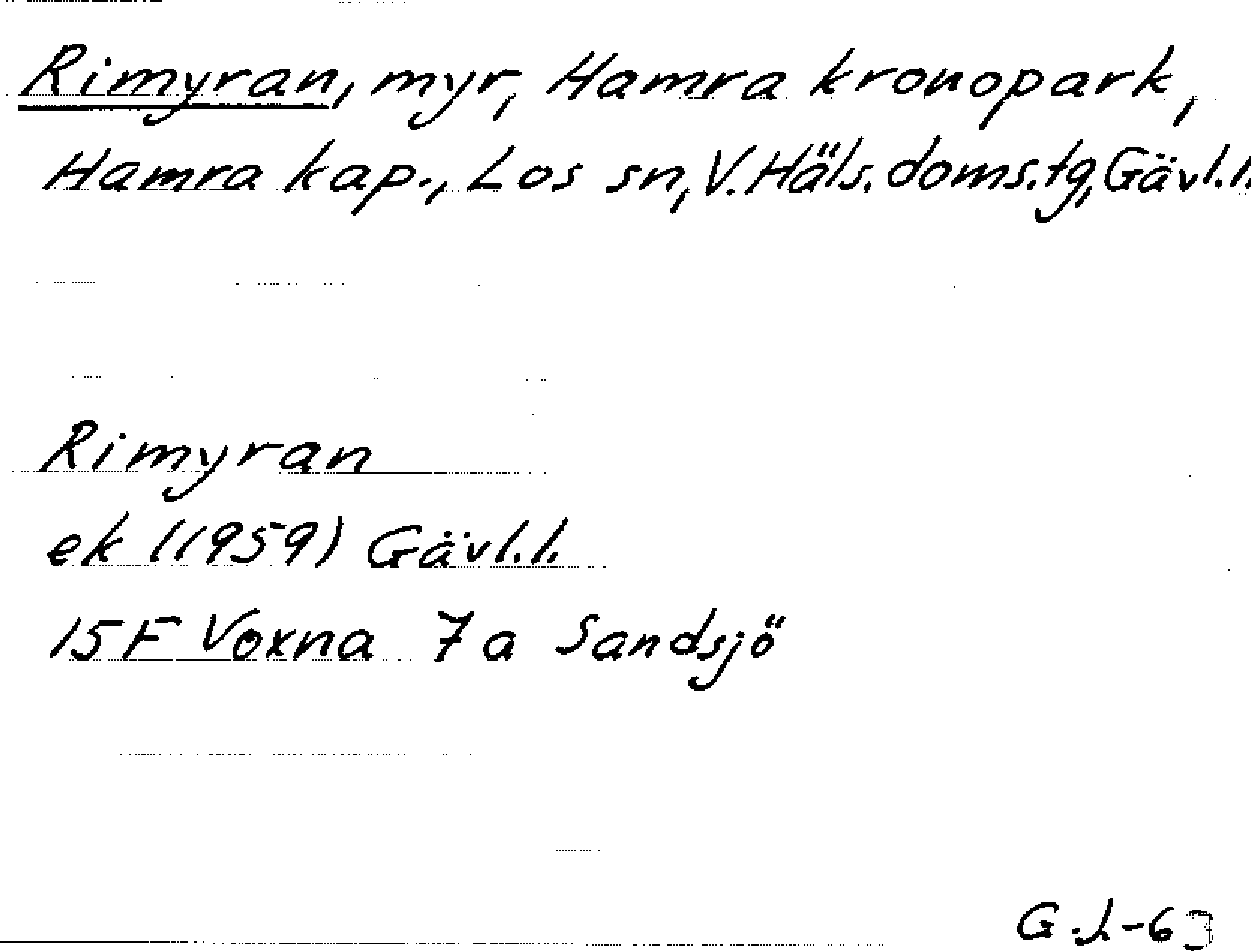 Rimyran, myr, Hamra kronopark,
Hamra kap., Los sn, V. Häls. doms. tg, Gävl.l.
Rimyran
ek (1959) Gävl.l.
15F Voxna 7a Sandsjö
G.J.-63